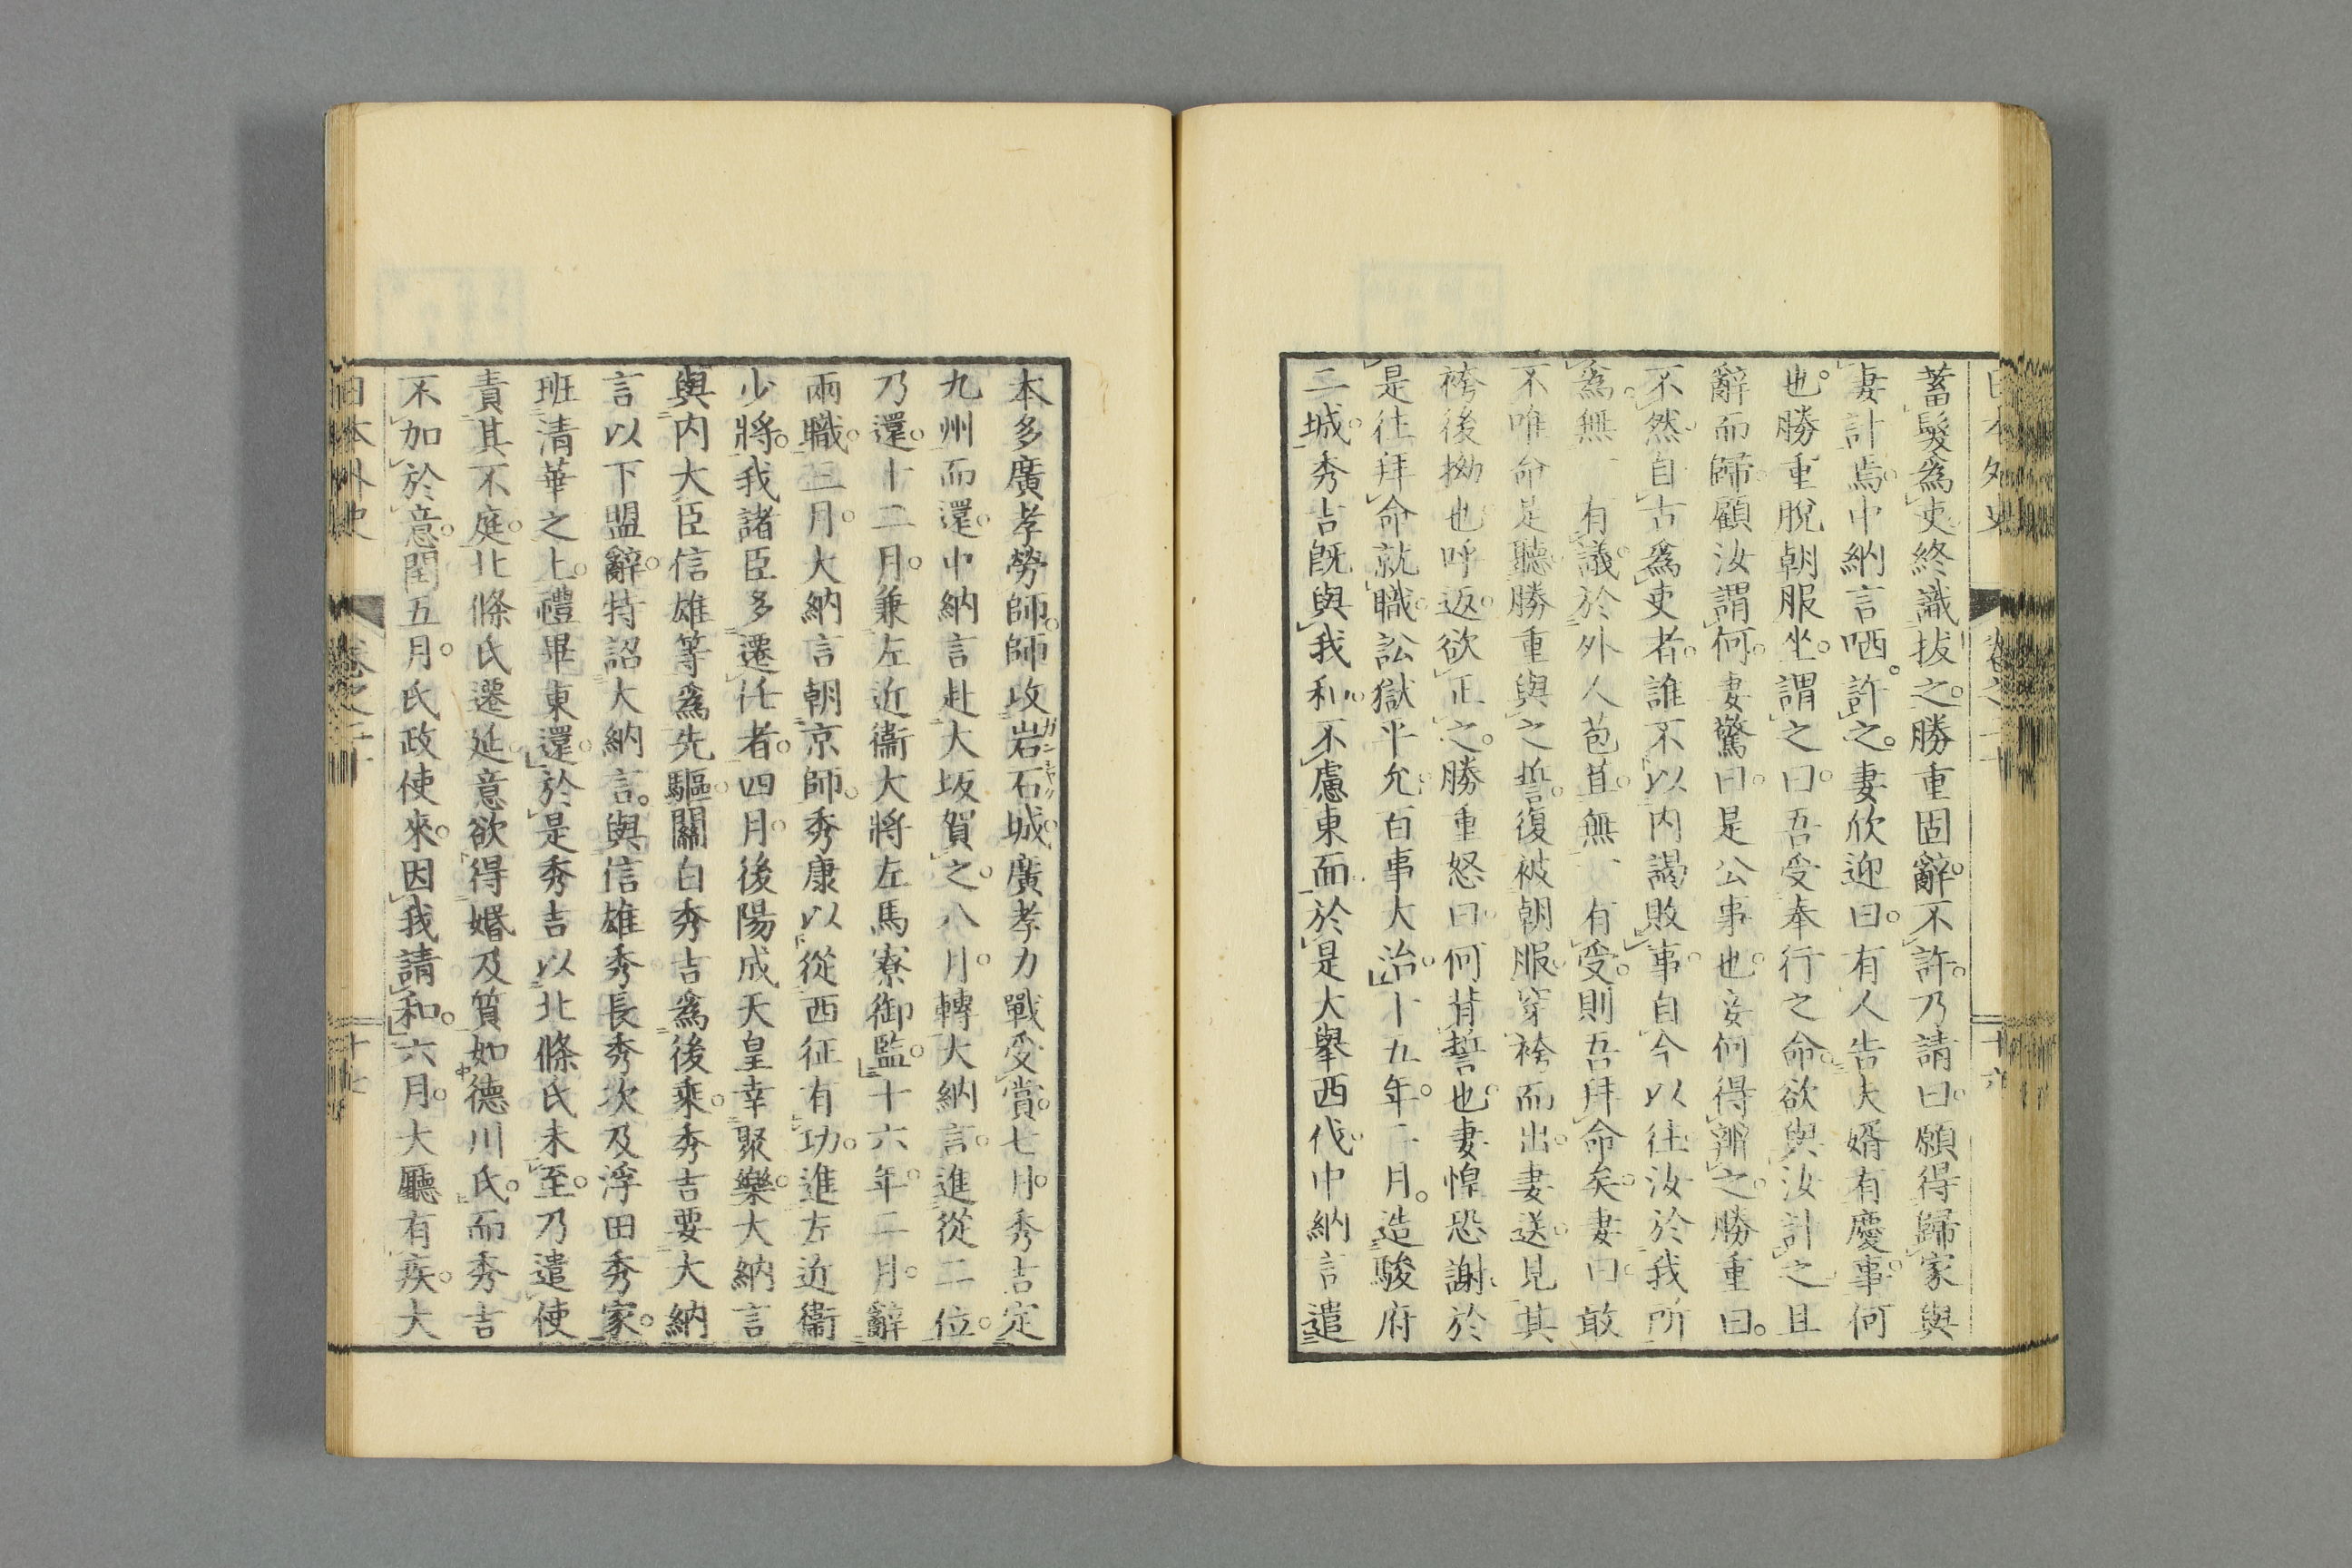 日本外史
卷之二十
十六
蓄髮爲吏終識拔之。勝重固辭。不許。乃請曰。願得歸家與
妻計焉。中納言哂。許之。妻欣迎曰。有人告夫婿有慶事。何
也。勝重脫朝服坐。謂之曰。吾受奉行之命。欲與汝計之且
辭而歸。顧汝謂何。妻驚曰。是公事也。妾何得辨之。勝重曰。
不然。自古爲吏者。誰不以内謁敗事。自今以往。汝於我所
爲無 有議。於外人苞苴。無 有受。則吾拜命矣。妻曰。敢
不唯命是聽。勝重與之誓。復被朝服。穿袴而出。妻送。見其
袴後拗也。呼返。欲正之。勝重怒曰。何背誓也。妻惶恐謝。於
是往拜命就職。訟獄平允。百事大治。十五年。二月。造駿府
二城。秀吉旣與我和。不慮東面。於是大舉西伐。中納言遣
本多廣孝勞師。師攻岩石城。廣孝力戰受賞。七月。秀吉定
九州而還。中納言赴大坂賀之。八月。轉大納言。進從二位。
乃還。十二月。兼左近衞大將左馬寮御監。十六年。二月。辭
兩職。三月。大納言朝京師。秀康以從西征有功。進左近衞
少將。我諸臣多遷任者。四月。後陽成天皇幸聚樂。大納言
與内大臣信雄等爲先驅。關白秀吉爲後乘。秀吉要大納
言以下盟辭。特詔大納言。與信雄秀長秀次及浮田秀家。
班清華之上。禮畢東還。於是秀吉以北條氏未至。乃遣使
責其不庭。北條氏遷延。意欲得婚及質如德川氏。而秀吉
不加於意。閏五月。氏政使來。因我請和。六月。大廳有疾。大
日本外史
卷之二十
十七